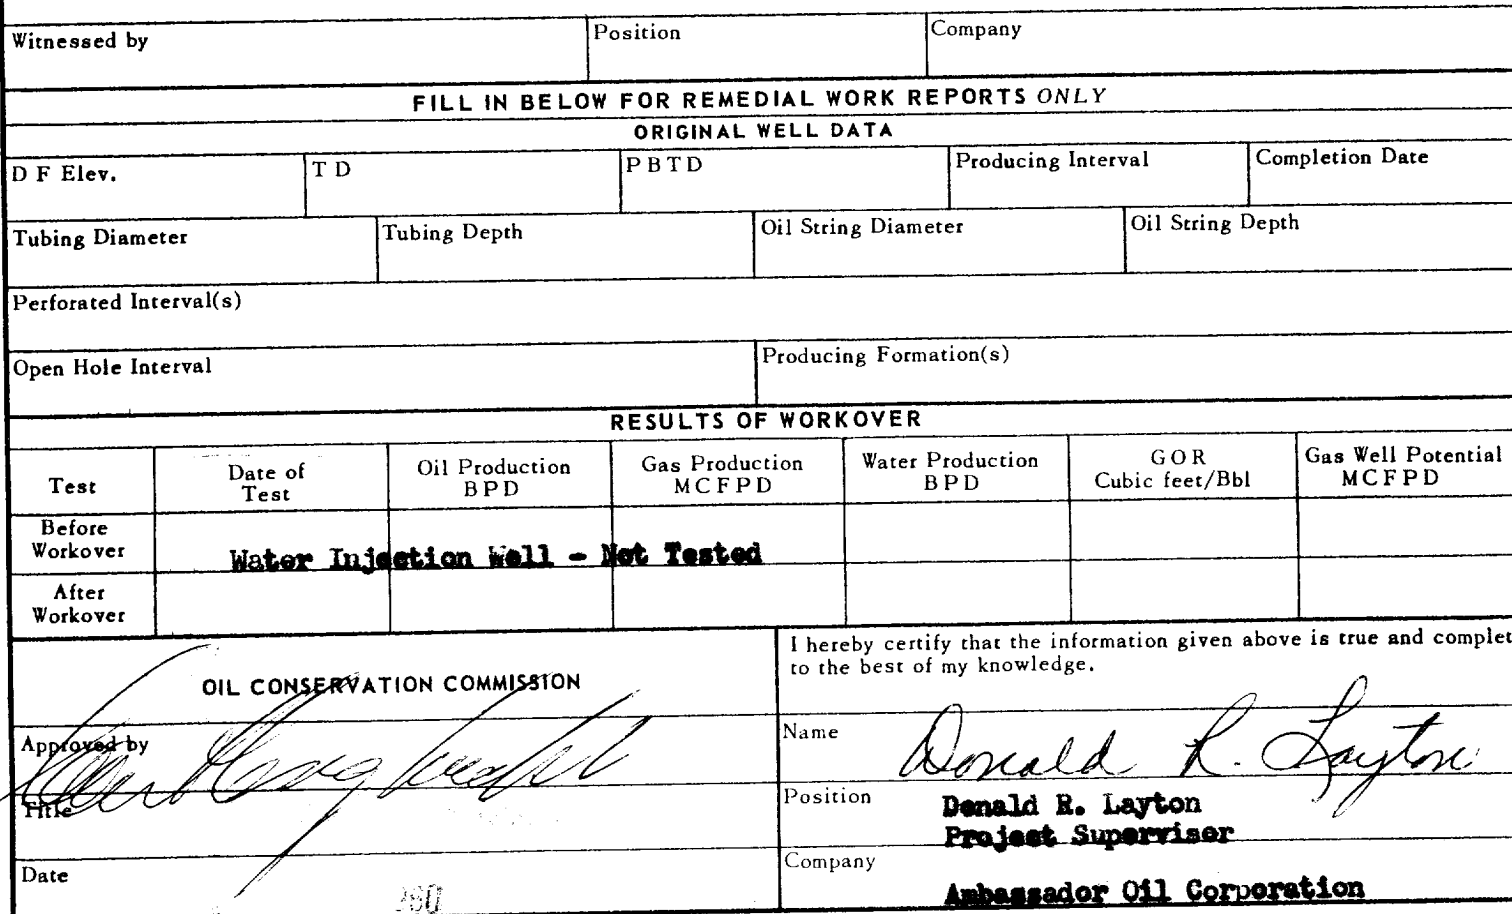 Witnessed by Position Company
FILL IN BELOW FOR REMEDIAL WORK REPORTS ONLY
ORIGINAL WELL DATA
D F Elev. T D P B T D Producing Interval Completion Date
Tubing Diameter Tubing Depth Oil String Diameter Oil String Depth
Perforated Interval(s)
Open Hole Interval Producing Formation(s)
RESULTS OF WORKOVER
Test Date of Test Oil Production BPD Gas Production MCFPD Water Production BPD GOR Cubic feet/Bbl Gas Well Potential MCFPD
Before Workover
Water Injection Well - Not Tested
After Workover
I hereby certify that the information given above is true and complet
to the best of my knowledge.
OIL CONSERVATION COMMISSION
Approved by
Name Donald R. Layton
Title
Position Donald R. Layton
Project Supervisor
Date
Company
Ambassador Oil Corporation